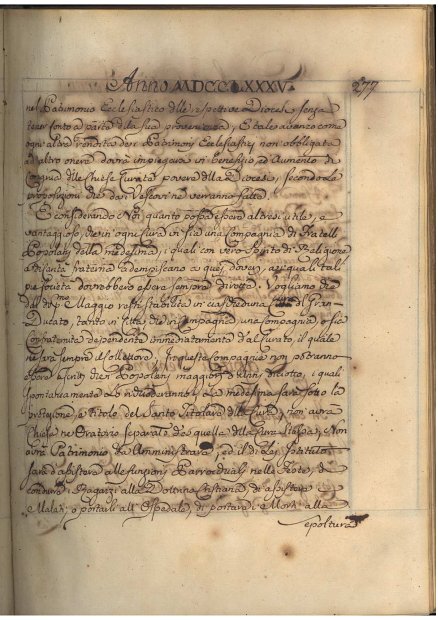 Anno MDCCLXXXV. 277
nel Patrimonio Ecclesiastico delle respettive Diocesi, senza
tener conto a parte della sua provenienza, E tale avanzo come
ogni altra rendita dei Patrimoni Ecclesiastici non obbligata
ad altro onere dovrà impiegarsi in benefizio, ed Aumento di
Congrua delle Chiese Curate povere della Diocesi, secondo le
proposizioni che dai Vescovi ne verranno fatte
E considerando Noi quanto possa essere altresì utile, e
vantaggioso, che in ogni Cura vi sia una Compagnia di Fratelli
Popolani della medesima, i quali con vero spirito di Religione
e di santa fraterna adempiscano a quei doveri, ai quali tali
pie società dovrebbero essere sempre dirette. Vogliamo che
Maggio resti stabilita in ciascheduna Cura di Gran-
Ducato, tanto in Città, che in Campagna una Compagnia, o sia
Confraternita dependente immediatamente dal Curato, il quale
ne sarà sempre il Correttore. In questa Compagnia non potranno
essere ascritti che i Popolani maggiori d'anni diciotto, i quali
spontaneamente si e la medesima sarà sotto la
protezione, e titolo del Santo Titolare della Cura, non avrà
Chiese, nè Oratorio separato da quelle della Cura stessa, Non
avrà Patrimonio da Amministrare, ed il di Lei Istituto
sarà d'assistere alle funzioni Parrocchiali nelle Feste, di
condurre i Ragazzi alla Dottrina Cristiana, di assistere i
Malati, o portarli all'Ospedale, di portare i Morti alla
sepoltura